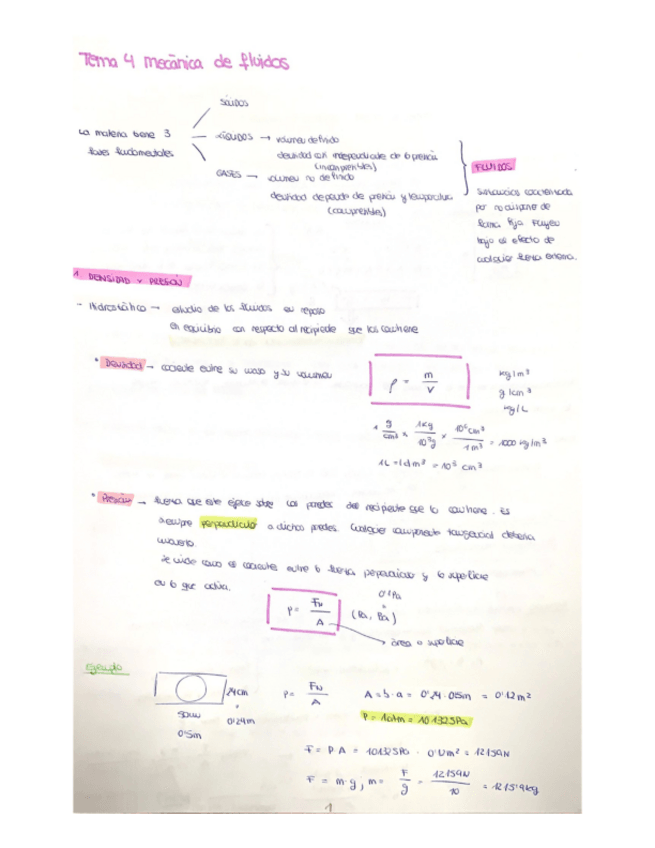 Tema 4 mecánica de fluidos
SÓLIDOS
La materia tiene 3
fases fundamentales
LÍQUIDOS → volumen definido
densidad casi independiente de la presión
(incompresibles)
GASES → volumen no definido
densidad depende de presión y temperatura
(compresibles)
FLUIDOS
sustancias caracterizada
por no disponer de
forma fija. Fluyen
bajo el efecto de
cualquier fuerza externa.
1. DENSIDAD Y PRESIÓN
- Hidrostática → estudio de los fluidos en reposo
en equilibrio con respecto al recipiente que los contiene
• Densidad → cociente entre su masa y su volumen
ρ = m / V
kg/m³
g/cm³
kg/L
1 g/cm³ × 1kg/10³g × 10⁶cm³/1m³ = 1000 kg/m³
1L = 1dm³ = 10³ cm³
• Presión → fuerza que este ejerce sobre las paredes del recipiente que lo contiene. Es
siempre perpendicular a dichas paredes. Cualquier componente tangencial debería
moverlo.
Se mide como el cociente entre la fuerza perpendicular y la superficie
en la que actúa.
P = FN / A
área o superficie
ejemplo
24cm
0'24m
50cm
0'5m
P = FN / A
A = b · a = 0'24 · 0'5m = 0'12m²
P = 1atm = 101325Pa
F = P·A = 101325Pa · 0'12m² = 12159N
F = m·g, m = F/g = 12159N/10 = 1215'9kg
1